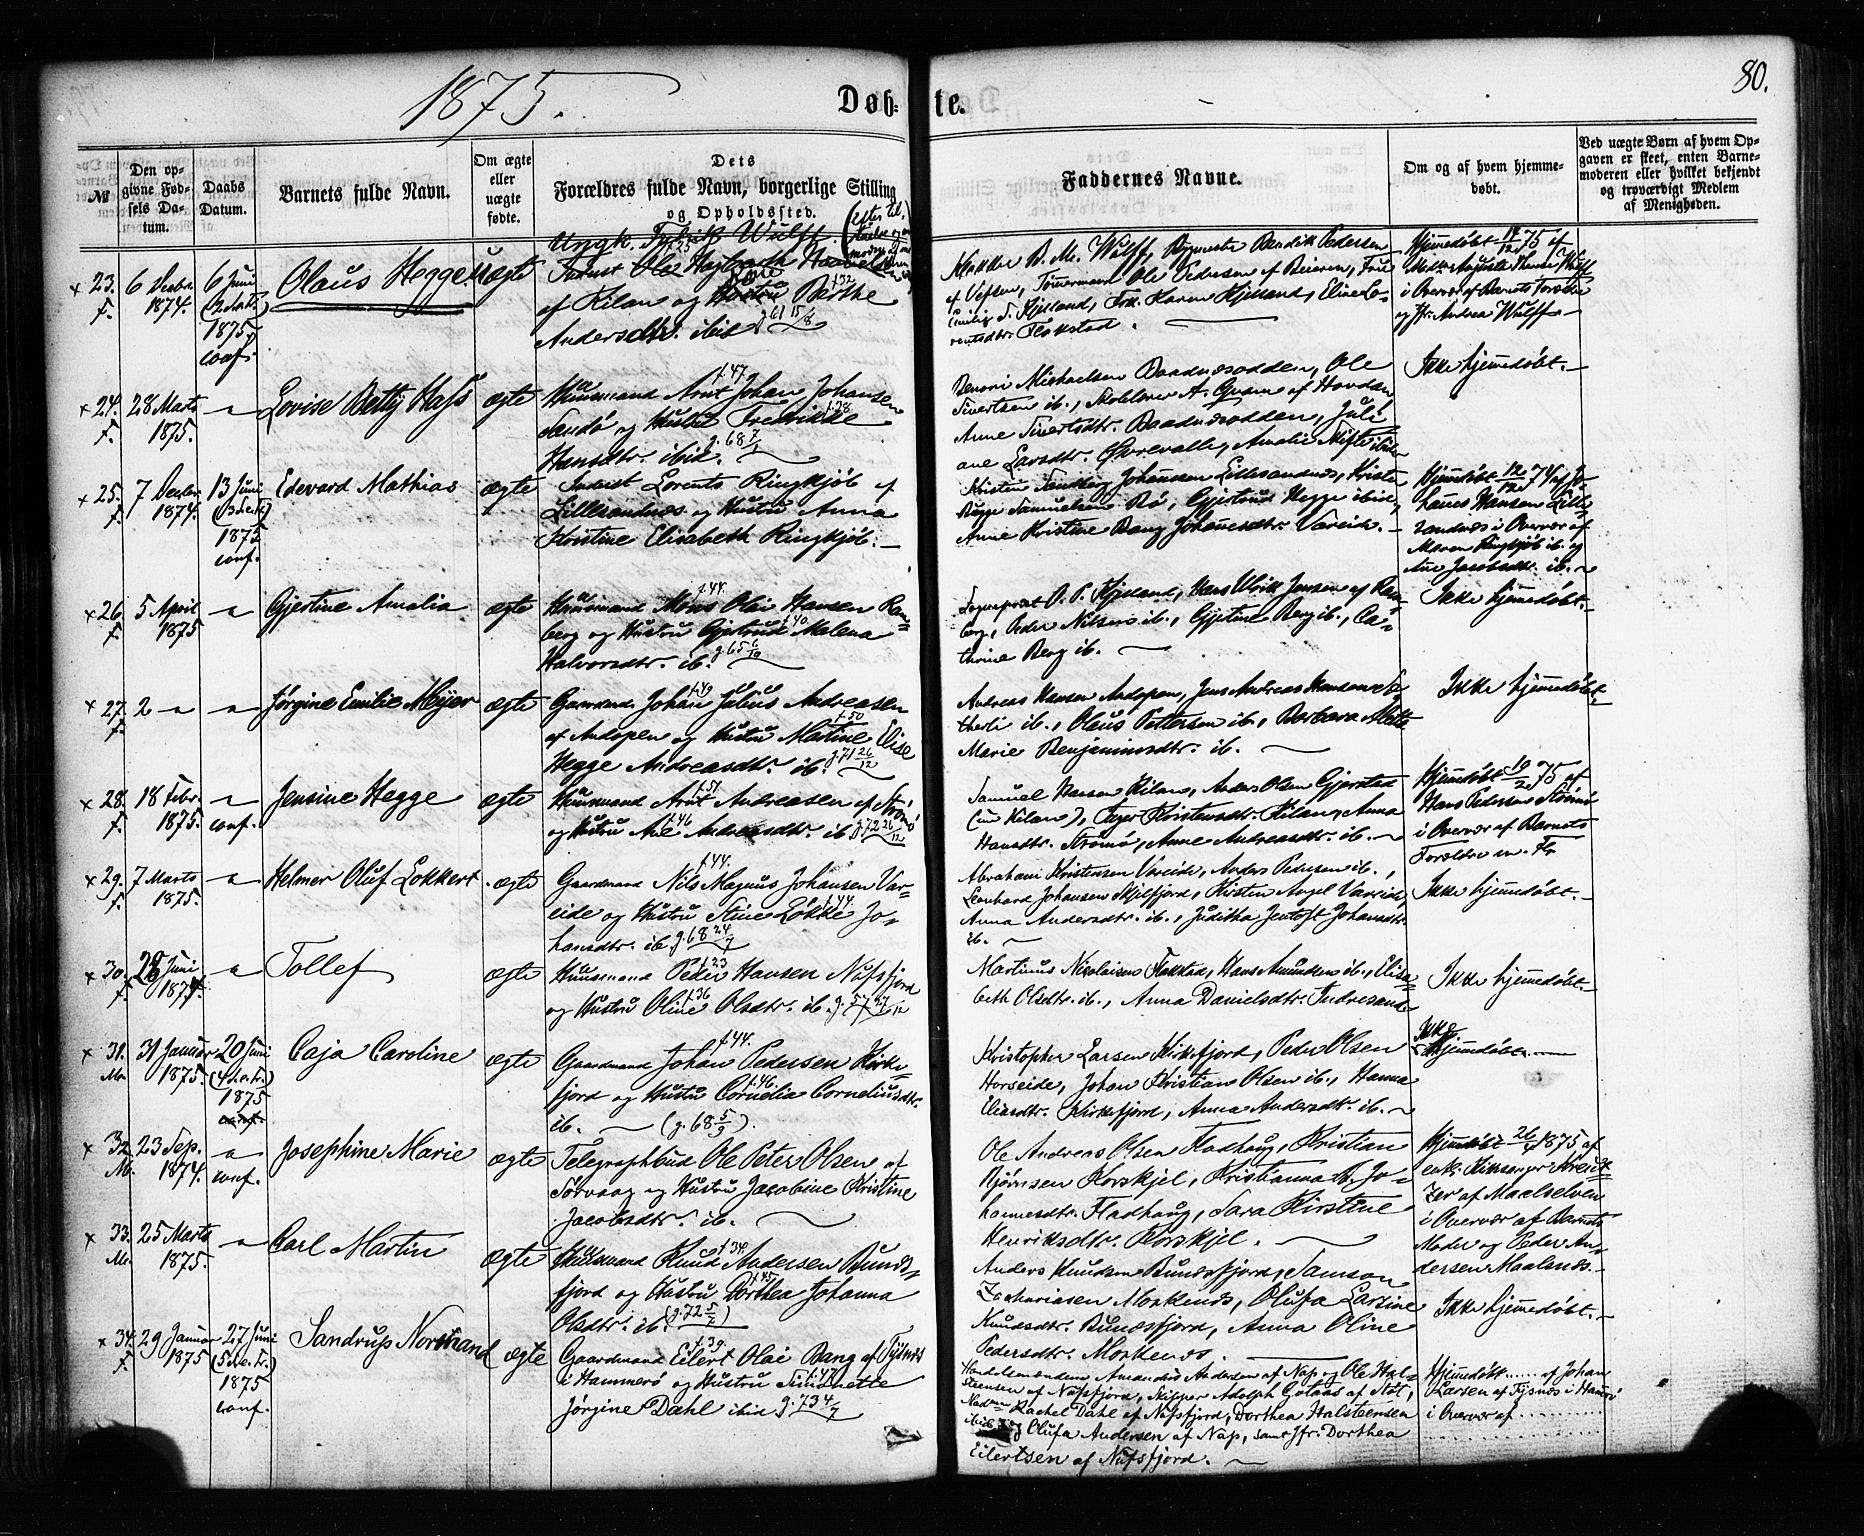 1875.
Døb-
te.
80.
№
Den op-
givne Fød-
sels Da-
tum.
Daabs
Datum.
Barnets fulde Navn.
Om ægte
eller
uægte
fødte.
Dets
Forældres fulde Navn, borgerlige Stilling
og Opholdssted.
Faddernes Navne.
Om og af hvem hjemme-
døbt.
Ved uægte Børn af hvem Op-
gaven er skeet, enten Barne-
moderen eller hvilket bekjendt
og troværdigt Medlem
af Menigheden.
23.
f.
6 Decbr.
1874.
6 Juni
1875
conf.
Olaus Hegge
uægte
Ungk. Fredrik Wulff
af Kilan og Berthe
Andersdtr. ibid g. 61 15/8
Klokker B. M. Wulff, Benedik Pedersen
af Vefsen, Tømmermand Ole Pedersen af Beieren, Fru
Emilie S. Kjelland, Frk. Karen Kjelland, Eline Lo-
rentsdtr. Flakstad.
Hjemmedøbt 75 af
Madm. Augusta Wulff
i Overvær af Barnets Forældre
og Jfr. Andrea Wulff
24.
f.
28 Marts
1875.
Lovise Betty Hass
ægte
Huusmand Arnt Johan Johansen
f. 47
Sandø og Hustru Fredrikke
f. 38
Hansdtr. ibid. g. 68 7/7
Benoni Michaelsen Baadnæsodden, Ole
Sivertsen ib., Skoblærer A. af Hovden
Anne Sivertsdtr. Baadnæsodden, Juli-
ane Larsdtr. Amalie ibid.
Ikke hjemmedøbt.
25.
f.
7 Decbr.
1874.
13 Juni
1875
conf.
Edevard Mathias
ægte
Indust Lorents Ringkjøb af
Lillesandnæs og Hustru Anna
Kristine Elisabeth Ringkjøb.
Kristen Sandberg Johansen Lillesandnæs, Kristen
Bugge Samuelsen Rø, Gjertrud Hegge ibid,
Anne Kristine Bang Johannesdtr. Vareide.
Hjemmedøbt 12/12 74 af Jo-
hannes Hansen Lille-
sandnæs i Overvær af
Maren Ringkjøb ib. og
Ane Jacobsdtr. ib.
26.
f.
5 April
1875
Gjertine Amalia
ægte
g. 44.
Huusmand Mons Olai Hansen Ram-
berg og Hustru Gjertrud Malena
f. 40.
Halvorsdtr. ib. g. 65 6/10
Sogneprest O. P. Kjelland, Hans Ulrik Jensen af Ram-
berg, Peder Nilsen ib., Gjertine Berg ib., Ca-
thrine Berg ib.
Ikke hjemmedøbt.
27.
f.
2
Jørgine Emilie Meyer
ægte
f. 49
Gaardmd. Johan Julius Andreasen
af Andopen og Hustru Martine Elise
f. 50
Hegge Andreasdtr. ib. g. 71 26/12
Andreas Hansen Andopen, Jens Andreas Hansen
ib., Olaus Pettersen ib., Barbara Mette
Marie Benjaminsdtr. ib.
Ikke hjemmedøbt.
28.
f.
18 Febr.
1875.
conf.
Jensine Hegge
ægte
f. 51
Huusmand Arnt Andreasen af Strømø
f. 46
og Hustru Ane Andreasdtr. ib. g. 72 26/12
Samuel Hansen Kilan, Anders Olsen Gjerstad
(i Kilan), Inger Kristensdtr. Kilan, Anna
Hansdtr. Strømø, Anne Andreasdtr. ib.
Hjemmedøbt 19/2 75 af
Hans Pedersen Strømø
i Overvær af Barnets
Forældre
29.
f.
7 Marts
1875.
Helmer Oluf Lokkert
ægte
f. 44.
Gaardmand Nils Magnus Johansen Var-
eide og Hustru Stine Løkke Jo-
f. 44
hansdtr. ib. g. 68 24/7
Abraham Kristensen Vareide, Anders Pedersen ib.,
Leonhard Johansen Skjelfjord, Kirsten Angel Vareide,
Anna Andersdtr. ib., Juditha Jentoft Johansdtr.
ib.
Ikke hjemmedøbt.
30.
f.
28 Juni
1874.
Tollef
ægte
f. 23
Huusmand Peder Hansen Nufsfjord
f. 36
og Hustru Oline Olsdtr. ib. g. 57 27/12
Martinus Nicolaisen Flakstad, Hans Amundsen ib., Elisa-
beth Olsdtr. ib., Anna Danielsdtr. Indresand
Ikke hjemmedøbt.
31.
M.
31 Januar
1875.
20 Juni
1875
conf.
Caja Caroline
ægte
f. 44.
Gaardmand Johan Pedersen Kirke-
f. 46.
fjord og Hustru Cornelia Corneliusdtr.
ib. (g. 68 5/9).
Kristopher Larsen Kirkefjord, Peder Olsen
Horseide, Johan Kristian Olsen ib., Hanna
Eliasdtr. Kirkefjord, Anna Andersdtr. ib.
Ikke
hjemmedøbt.
32.
M.
23 Sep.
1874.
conf.
Josephine Marie
ægte
Telegraphbud Ole Peter Olsen af
Sørvaag og Hustru Jacobine Kristine
Jacobsdtr. ib.
Ole Andreas Olsen Fladhaug, Kristian
Bjørnsen Korskjel, Kristianna A. Jo-
hannesdtr. Fladhaug, Sara Kirstine
Henriksdtr. Korskjel.
Hjemmedøbt 1875 af
enk. Kirkesanger Kreut-
zer af Maalselven
i Overvær af Barnets
Moder og Peder An-
dersen Maalsnæs.
33.
M.
25 Marts
1875.
Carl Martin
ægte
f. 34.
Huusmand Knud Andersen Bunds-
f. 45
fjord og Hustru Dorthea Johanna
Olsdtr. ib. (g. 72 5/2)
Anders Knudsen Bundsfjord, Samson
Zachariasen Moskenæs, Olufa Larsine
Knudsdtr. Bundsfjord, Anna Oline
Pedersdtr. Moskenæs.
Ikke hjemmedøbt.
34.
f.
29 Januar
1875
27 Juni
1875
conf.
Sandrup Normand
ægte
f. 39.
Gaardmand Eilert Olai Bang af Tysnæs
f. 47
i Hammerø og Hustru Simonette
Jørgine Dahl ibid g. 73 4/7
Handelsmændene Amandus Andersen af Nap og Ole Hal-
steensen af Nufsfjord, Skipper Adolph Gotaas af Støt,
Madm. Rachel Dahl af Nufsfjord, Dorthea Halsteensen
ibid og Olufa Andersen af Nap, samt Jfr. Dorthea
Eilertsen af Nufsfjord.
Hjemmedøbt ...... af Johan
Larsen af Tysnæs i Hamerø
i Overvær af ..........